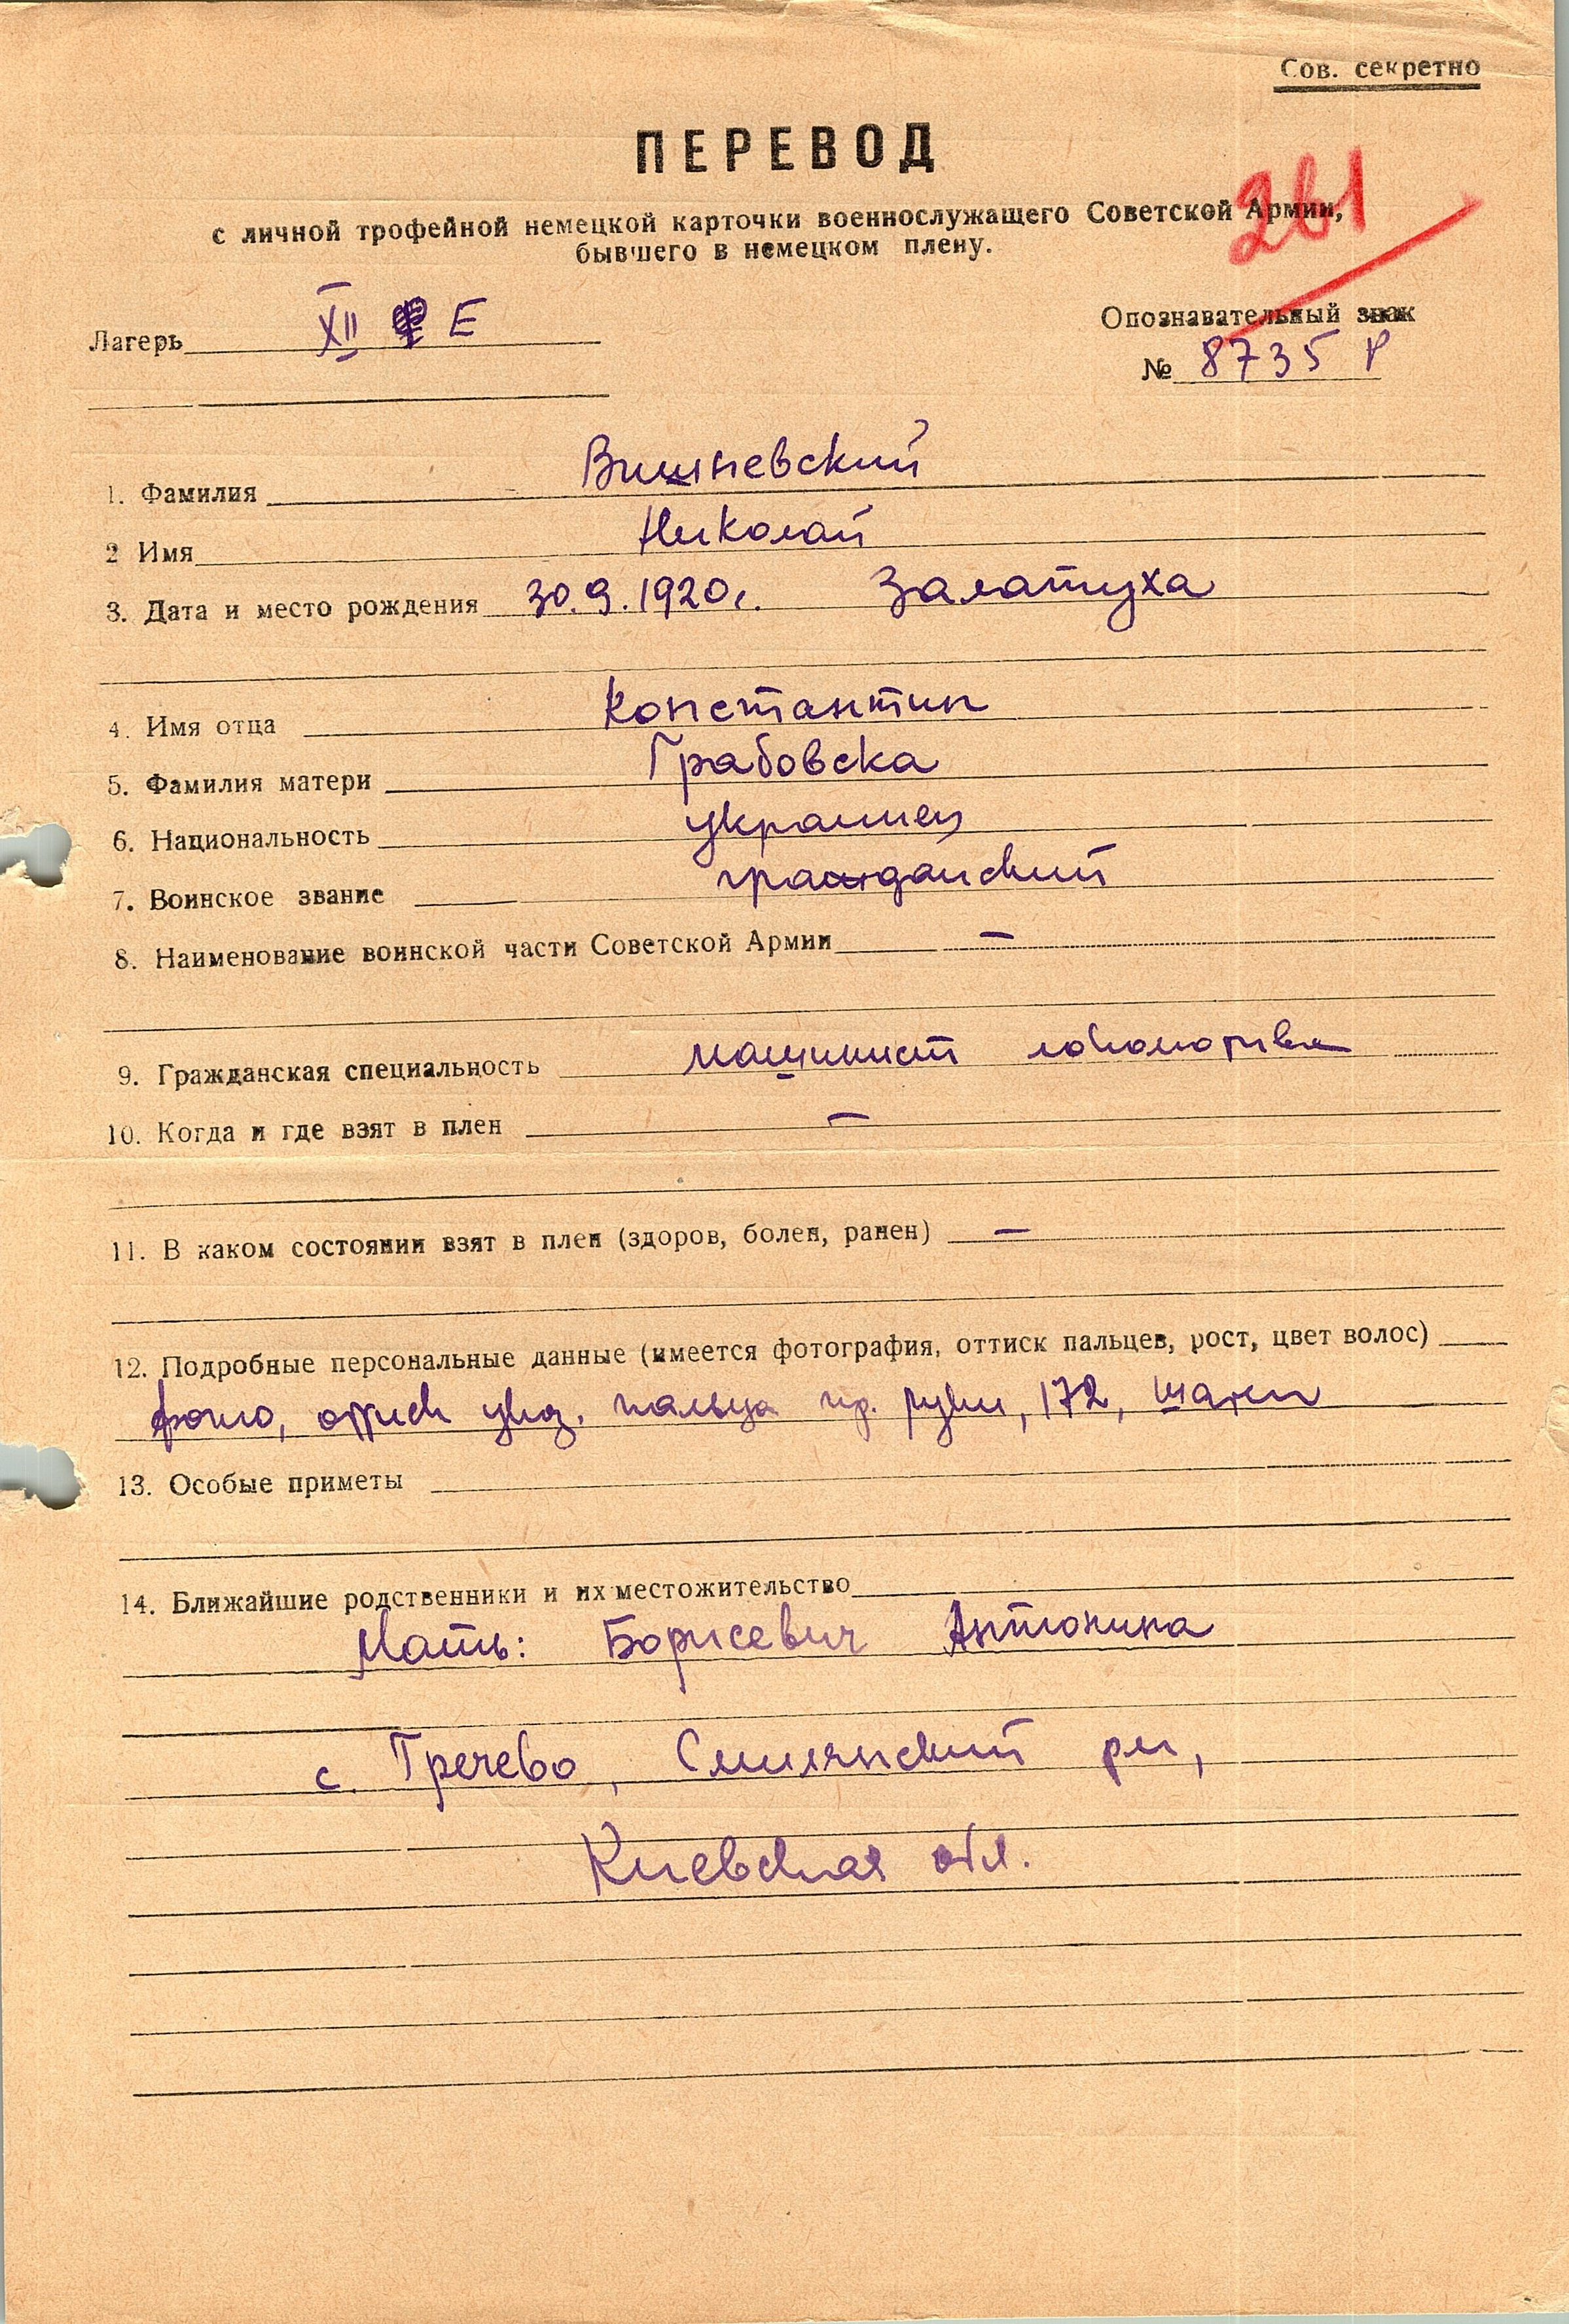 Сов. секретно
ПЕРЕВОД
261
с личной трофейной немецкой карточки военнослужащего Советской Армии,
бывшего в немецком плену.
Лагерь XII E
Опознавательный знак
№ 8735 Р
1. Фамилия Вишневский
2 Имя Николай
3. Дата и место рождения 30.9.1920г. Залатуха
4. Имя отца Константин
5. Фамилия матери Грабовска
6. Национальность украинец
7. Воинское звание гражданский
8. Наименование воинской части Советской Армии —
9. Гражданская специальность машинист локомотива
10. Когда и где взят в плен —
11. В каком состоянии взят в плен (здоров, болен, ранен) —
12. Подробные персональные данные (имеется фотография, оттиск пальцев, рост, цвет волос)
фото, оттиск указ. пальца пр. руки, 172, шатен
13. Особые приметы
14. Ближайшие родственники и их местожительство
Мать: Борисевич Антонина
с. Гречево, Смилянский рн,
Киевская обл.